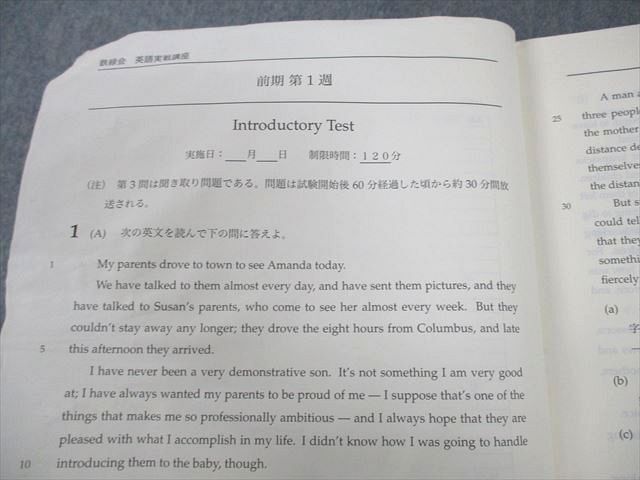 鉄緑会 英語実戦講座
前期 第1週
Introductory Test
実施日：___月___日 制限時間：120分
(注) 第3問は聞き取り問題である。問題は試験開始後60分経過した頃から約30分間放
送される。
1 (A) 次の英文を読んで下の問に答えよ。
1 My parents drove to town to see Amanda today.
We have talked to them almost every day, and have sent them pictures, and they
have talked to Susan's parents, who come to see her almost every week. But they
couldn't stay away any longer; they drove the eight hours from Columbus, and late
5 this afternoon they arrived.
I have never been a very demonstrative son. It's not something I am very good
at; I have always wanted my parents to be proud of me — I suppose that's one of the
things that makes me so professionally ambitious — and I always hope that they are
pleased with what I accomplish in my life. I didn't know how I was going to handle
10 introducing them to the baby, though.
A man
25 three people
the mother
distance
themselves
the distan
30 But
could tell
that they
somethi
fiercely
(a)
字
(b)
(c)